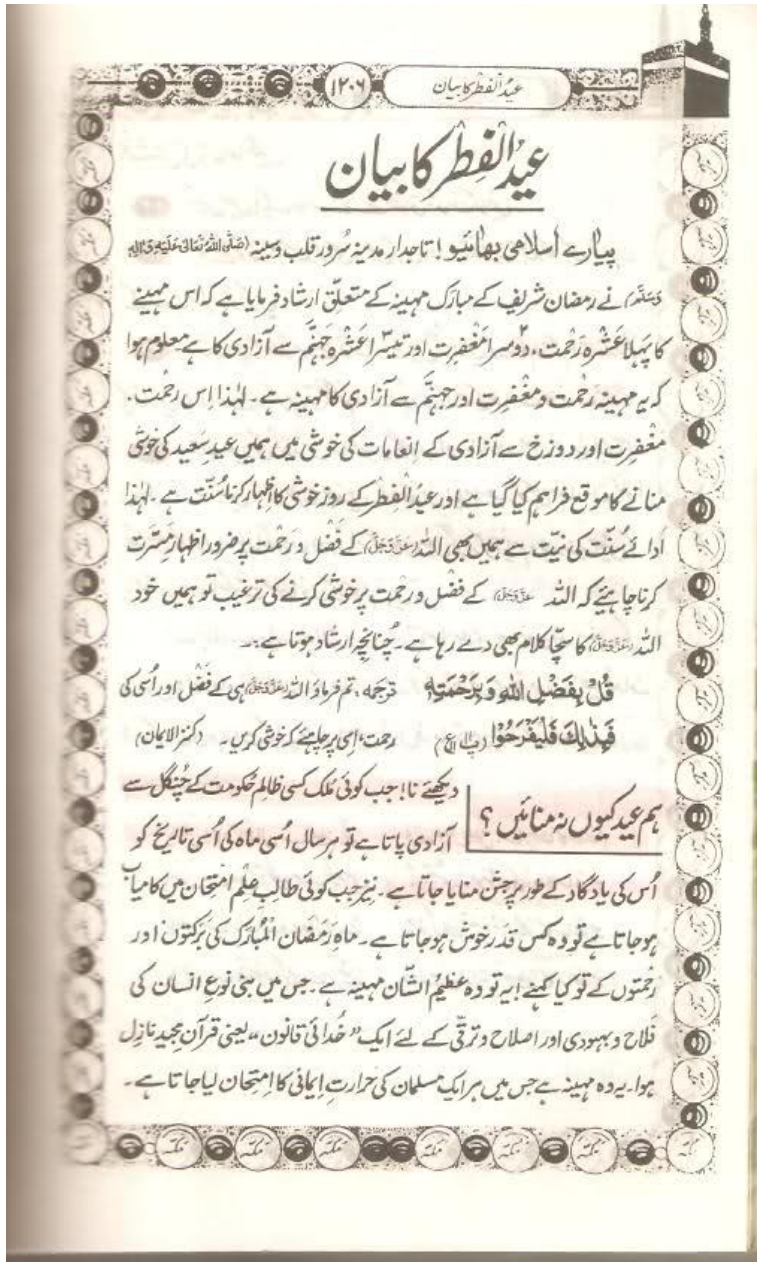 عیدُ الفِطْر کا بیان
۱۲۰۶
عیدُ الفِطْر کا بیان
پیارے اسلامی بھائیو! تاجدارِ مدینہ سُرورِ قلب وسینہ (صَلَّی اللہُ تَعَالٰی عَلَیْہِ وَاٰلِہٖ
وَسَلَّم) نے رمضان شریف کے مبارک مہینہ کے متعلّق ارشاد فرمایا ہے کہ اس مہینے
کا پہلا عَشْرہ رَحْمت، دُوسرا مَغْفِرت اور تیسرا عَشْرہ جہنّم سے آزادی کا ہے معلوم ہوا
کہ یہ مہینہ رَحْمت و مغْفِرت اور جہنّم سے آزادی کا مہینہ ہے۔ لہٰذا اِس رحْمت،
مَغْفِرت اور دوزخ سے آزادی کے انعامات کی خوشی میں ہمیں عیدِ سَعید کی خوشی
منانے کا موقع فراہم کیا گیا ہے اور عیدُ الفِطْر کے روز خوشی کا اظہار کرنا سُنّت ہے۔ لہٰذا
ادائے سُنّت کی نیّت سے ہمیں بھی اللہ (عَزَّوَجَلَّ) کے فَضْل و رَحْمت پر ضرور اظہارِ مَسَرَّت
کرنا چاہیئے کہ اللہ عَزَّوَجَلَّ کے فضْل و رحْمت پر خوشی کرنے کی ترغیب تو ہمیں خود
اللہ (عَزَّوَجَلَّ) کا سچّا کلام بھی دے رہا ہے۔ چُنانچِہ ارشاد ہوتا ہے :۔
قُلْ بِفَضْلِ اللہِ وَبِرَحْمَتِہٖ ترجَمہ : تم فرماؤ اللہ (عَزَّوَجَلَّ) ہی کے فَضْل اور اُسی کی
فَبِذٰلِکَ فَلْیَفْرَحُوْا رحمت، اِسی پر چاہیئے کہ خوشی کریں۔ (کنز الایمان)
ہم عید کیوں نہ منائیں ؟
دیکھئے نا! جب کوئی مُلک کسی ظالم حُکومت کے چُنگل سے
آزادی پاتا ہے تو ہر سال اُسی ماہ کی اُسی تاریخ کو
اُس کی یادگار کے طور پر جشْن منایا جاتا ہے۔ نیز جب کوئی طالبِ عِلْم امتحان میں کامیاب
ہوجاتا ہے تو وہ کس قدر خوش ہوجاتا ہے۔ ماہِ رَمَضان المُبارَک کی بَرَکتوں اور
رَحْمتوں کے تو کیا کہنے! یہ تو وہ عظیمُ الشّان مہینہ ہے۔ جس میں بنی نوعِ انسان کی
فَلاح و بہبودی اور اصلاح و ترقّی کے لئے ایک "خُدائی قانون" یعنی قرآن مجید نازِل
ہوا۔ یہ وہ مہینہ ہے جس میں ہر ایک مسلمان کی حرارتِ اِیمانی کا اِمتِحان لیا جاتا ہے۔